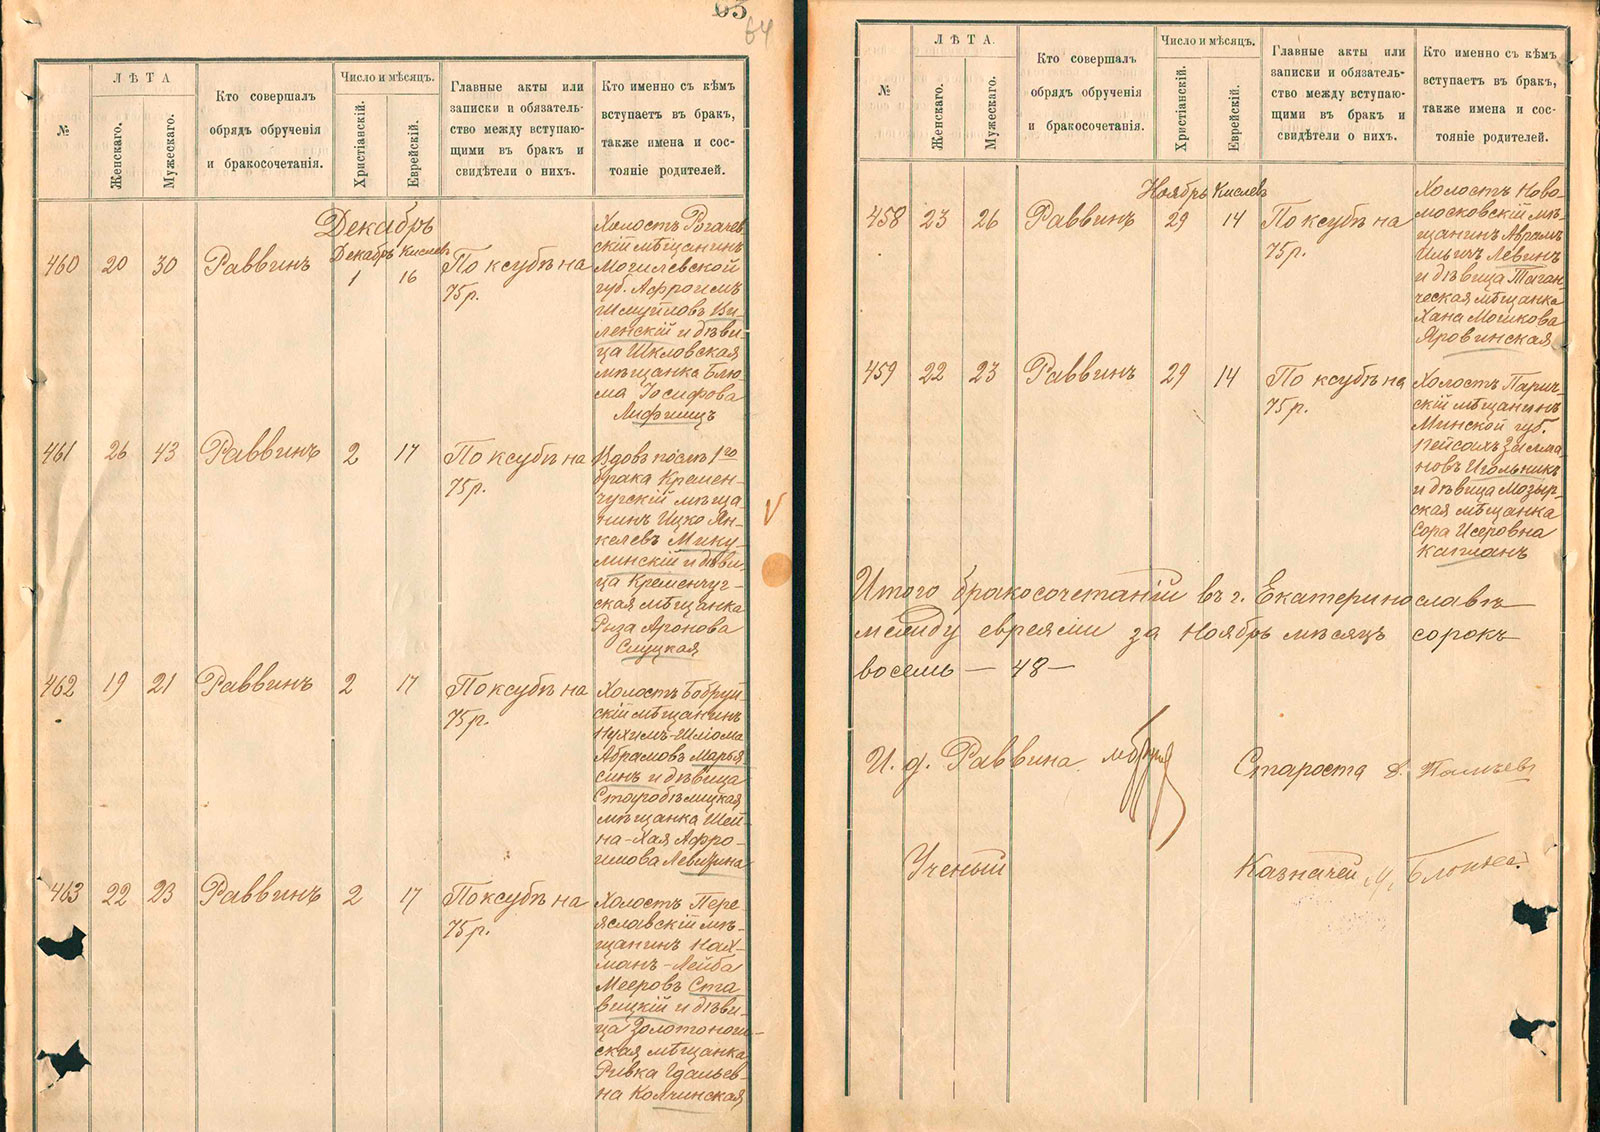 65
64
№
ЛѢТА
Женскаго.
Мужескаго.
Кто совершалъ
обрядъ обрученія
и бракосочетанія.
Число и мѣсяцъ.
Христіанскій.
Еврейскій.
Главные акты или
записки и обязатель-
ство между вступаю-
щими въ бракъ и
свидѣтели о нихъ.
Кто именно съ кѣмъ
вступаетъ въ бракъ,
также имена и сос-
тояніе родителей.
Декабрь
460 20 30 Раввинъ Декабрь 1 Кислевъ 16 По ксубѣ на
75 р.
Холостъ Рогачев
скій мѣщанинъ
Могилевской
губ. Афроимъ
Шмуйловъ Ви-
ленскій и дѣви-
ца Шкловская
мѣщанка Блю-
ма Іосифова
Лифшицъ
461 26 43 Раввинъ 2 17 По ксубѣ на
75 р.
Вдовъ послѣ 1го
брака Кремен-
чугскій мѣща-
нинъ Ицко Ян-
келевъ Мику-
линскій и дѣви-
ца Кременчуг-
ская мѣщанка
Роза Аронова
Слуцкая
462 19 21 Раввинъ 2 17 По ксубѣ на
75 р.
Холостъ Бобруй
скій мѣщанинъ
Нухимъ-Шлома
Абрамовъ Марья
синъ и дѣвица
Старобѣлицкая
мѣщанка Шей-
на-Хая Афро-
имова Левизина
463 22 23 Раввинъ 2 17 По ксубѣ на
75 р.
Холостъ Пере
яславскій мѣ-
щанинъ Нах-
манъ-Лейба
Мееровъ Ста
вицкій и дѣви-
ца Золотонош-
ская мѣщанка
Ривка Гдальев-
на Колчинская
№
ЛѢТА.
Женскаго.
Мужескаго.
Кто совершалъ
обрядъ обрученія
и бракосочетанія.
Число и мѣсяцъ.
Христіанскій.
Еврейскій.
Главные акты или
записки и обязатель-
ство между вступаю-
щими въ бракъ и
свидѣтели о нихъ.
Кто именно съ кѣмъ
вступаетъ въ бракъ,
также имена и сос-
тояніе родителей.
458 23 26 Раввинъ Ноябрь 29 Кислевъ 14 По ксубѣ на
75 р.
Холостъ Ново-
московскій мѣ-
щанинъ Аврамъ
Ильичъ Левинъ
и дѣвица Таган-
ческая мѣщанка
Хана Мошкова
Яровинская
459 22 23 Раввинъ 29 14 По ксубѣ на
75 р.
Холостъ Парич-
скій мѣщанинъ
Минской губ.
Пейсахъ Залма
новъ Игольникъ
и дѣвица Мозыр-
ская мѣщанка
Сора Исеровна
Капланъ
Итого бракосочетаній въ г. Екатеринославѣ
между евреями за ноябрь мѣсяцъ сорокъ
восемь — 48 —
И. д. Раввина
Староста
Ученый
Казначей